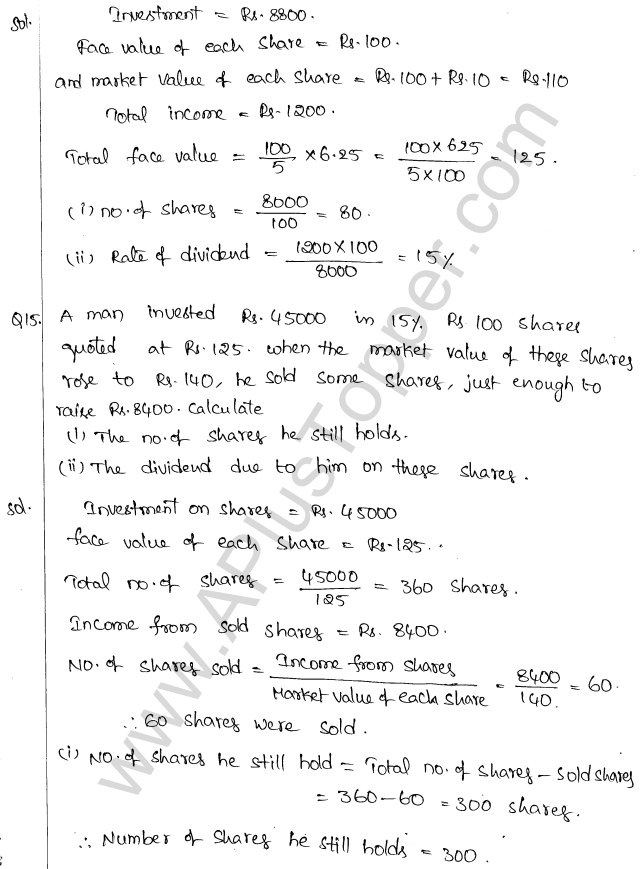 Sol. Investment = Rs. 8800.
Face value of each share = Rs. 100.
and market value of each share = Rs. 100 + Rs. 10 = Rs. 110
Total income = Rs. 1200.
Total face value = 100/5 × 6.25 = 100 × 625 / 5 × 100 = 125.
(i) no. of shares = 8000/100 = 80.
(ii) Rate of dividend = 1200 × 100 / 8000 = 15%
Q15. A man invested Rs. 45000 in 15% Rs 100 shares
quoted at Rs. 125. when the market value of these shares
rose to Rs. 140, he sold some shares, just enough to
raise Rs. 8400. Calculate
(i) The no. of shares he still holds.
(ii) The dividend due to him on these shares.
Sol. Investment on shares = Rs. 45000
face value of each share = Rs. 125..
Total no. of shares = 45000/125 = 360 shares.
Income from sold shares = Rs. 8400.
No. of shares sold = Income from shares / Market value of each share = 8400/140. = 60.
∴ 60 shares were sold.
(i) No. of shares he still hold = Total no. of shares – sold shares
= 360 – 60 = 300 shares.
∴ Number of shares he still holds = 300.
www.APlusTopper.com